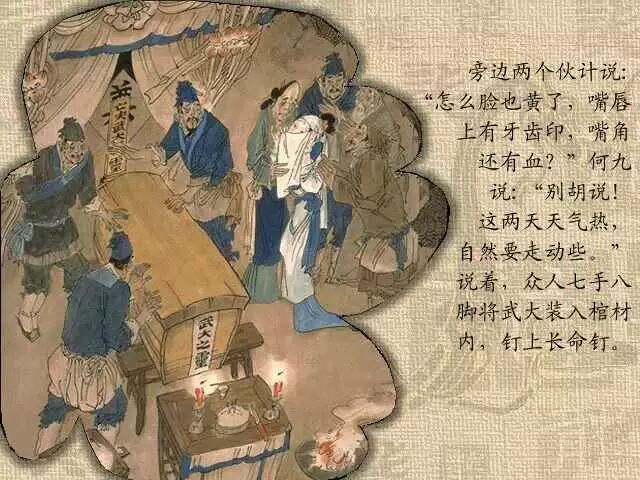 旁边两个伙计说:
“怎么脸也黄了，嘴唇
上有牙齿印，嘴角
还有血？”何九
说:“别胡说！
这两天天气热，
自然要走动些。”
说着，众人七手八
脚将武大装入棺材
内，钉上长命钉。
武大之靈